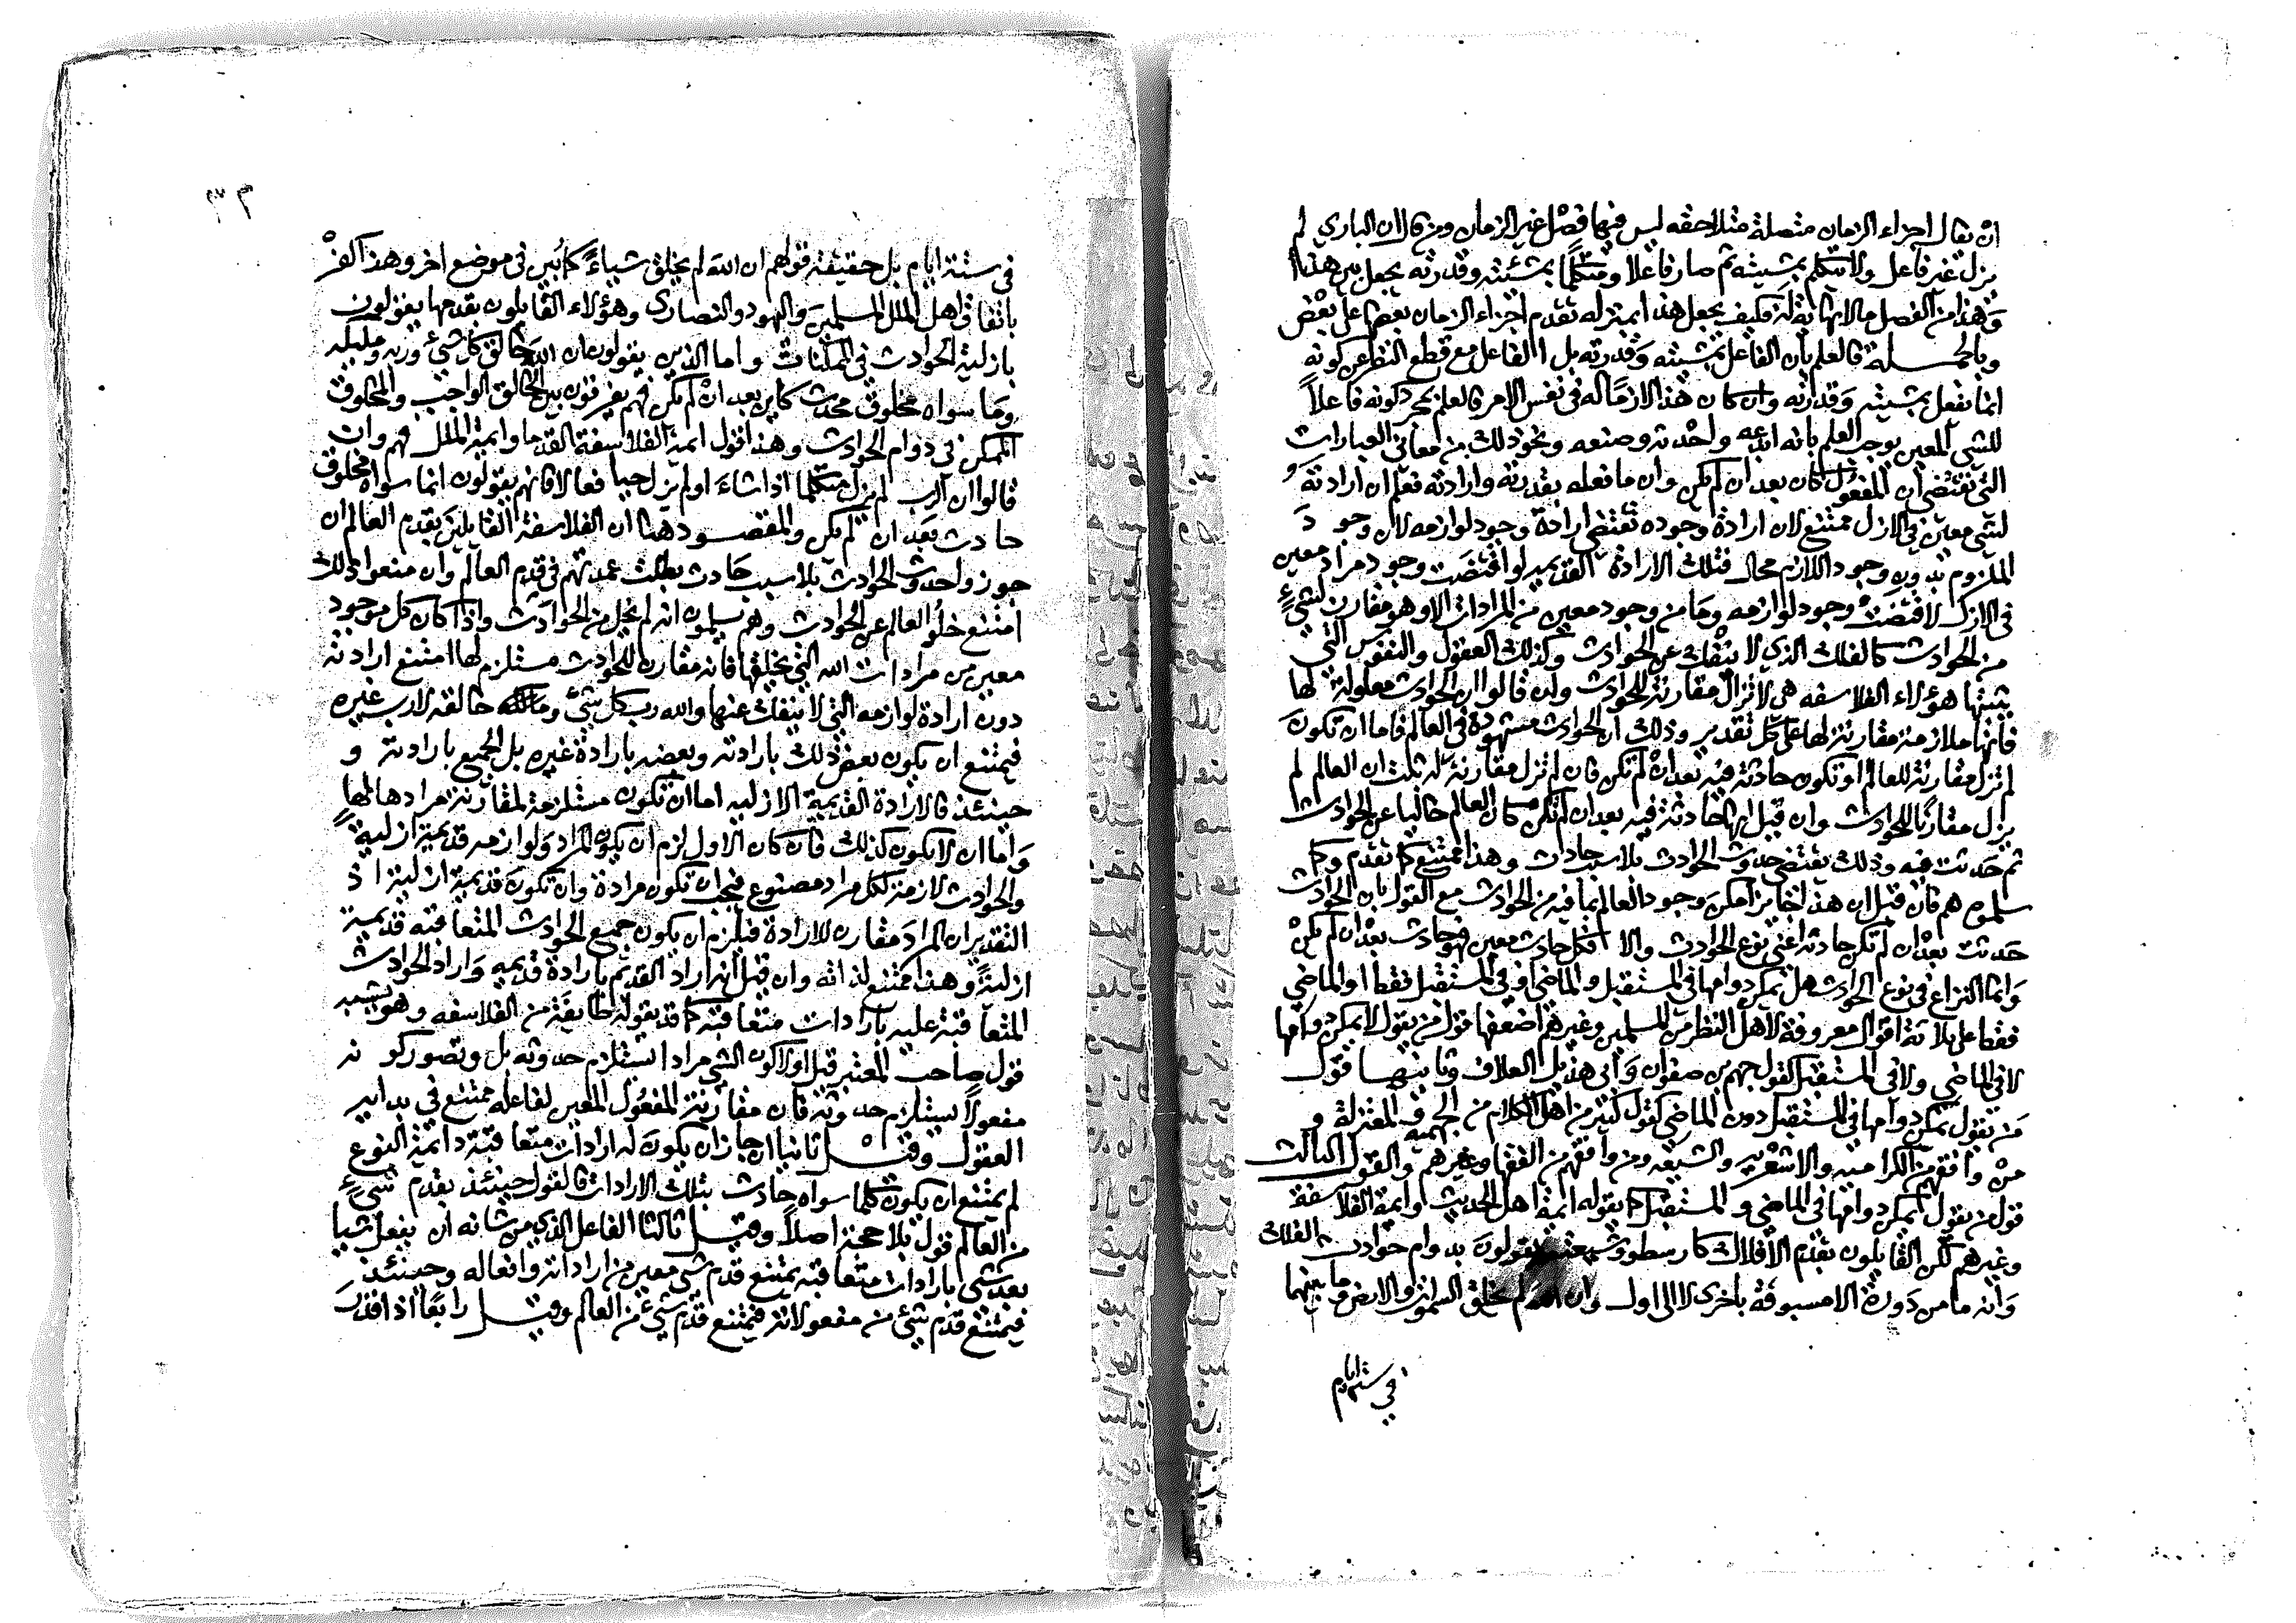 ان يقال اجزاء الزمان متصلة متلاحقه ليس فيها فصل غير الزمان ومن قال ان الباري لم
يزل غير فاعل ولا متكلم بمشيئته ثم صار فاعلا ومتكلما بمشئته وقدرته يجعل بين هذا
وهذا من الفصل مالا نهاية له فكيف يجعل هذا بمنزلة تقدم اجزاء الزمان بعضها على بعض
وبالجملة فالعلم بان الفاعل بمشيئته وقدرته بل الفاعل مع قطع النظر عن كونه
انما يفعل بمشيئته وقدرته وان كان هذا لازما له في نفس الامر فالعلم بمجرد كونه فاعلاً
للشي المعين يوجب العلم بانه ابدعه واحدثه وصنعه ونحو ذلك من معاني العبارات
التي تقتضي ان المفعول كان بعد ان لم يكن وان ما فعله بقدرته وارادته فعلم ان ارادته
لشي معين في الازل ممتنع لان ارادة وجوده تقتضي ارادة وجود لوازمه لان وجود
الملزوم بدون وجود اللازم محال فتلك الارادة القديمه لو اقتضت وجود مراد معين
في الازل لاقتضت وجود لوازمه وما من وجود معين من المرادات الا وهو مقارن لشيء
من الحوادث كالفلك الذي لا ينفك عن الحوادث وكذلك العقول والنفوس التي
يثبتها هؤلاء الفلاسفه هي لا تزال مقارنة للحوادث وان قالوا ان الحوادث معلولة لها
فانها ملازمة مقارنة لها على كل تقدير وذلك ان الحوادث مشهودة في العالم فاما ان تكون
لم تزل مقارنة للعالم او تكون حادثة فيه بعد ان لم تكن فان لم تزل مقارنة له ثبت ان العالم لم
يزل مقارنا للحوادث وان قيل انها حادثة فيه بعد ان لم تكن كان العالم خاليا عن الحوادث
ثم حدثت فيه وذلك يقتضي حدوث الحوادث بلا سبب حادث وهذا ممتنع كما تقدم وكما
سلموه هم فان قيل ان هذا جايز امكن وجود العالم بما فيه من الحوادث مع القول بان الحوادث
حدثت بعد ان لم تكن حادثة اعني نوع الحوادث والا فكل حادث معين فهو حادث بعد ان لم يكن
وانما النزاع في نوع الحوادث هل يمكن دوامها في المستقبل والماضي او في المستقبل فقط او الماضي
فقط على ثلاثة اقوال معروفة لاهل النظر من المسلمين وغيرهم اضعفها قول من يقول لا يمكن دوامها
لا في الماضي ولا في المستقبل كقول جهم بن صفوان وابي هذيل العلاف وثانيها قول
من يقول يمكن دوامها في المستقبل دون الماضي كقول كثير من اهل الكلام من الجهمية والمعتزلة و
من وافقهم من الكرامية والاشعريه والشيعه ومن وافقهم من الفقهاء وغيرهم والقول الثالث
قول من يقول يمكن دوامها في الماضي والمستقبل كما يقوله ايمة اهل الحديث وايمة الفلاسفة
وغيرهم لكن القايلون بقدم الافلاك كارسطو وشيعته يقولون بدوام حوادث الفلك
وانه ما من دورة الا مسبوقة باخرى لا الى اول وان الله لم يخلق السموات والارض وما بينهما
في ستة ايام
٣٢
في ستة ايام بل حقيقة قولهم ان الله لم يخلق شياءً كما بُين في موضع اخر وهذا كفر
باتفاق اهل الملل المسلمين واليهود والنصارى وهؤلاء القايلون بقدمها يقولون
بازلية الحوادث في الممكنات واما الذين يقولون ان الله خالق كل شيء وربه ومليكه
وما سواه مخلوق محدث كاين بعد ان لم يكن فهم يفرقون بين الخالق الواجب والمخلوق
الممكن في دوام الحوادث وهذا قول ايمة الفلاسفة القدما وايمة الملل فهم وان
قالوا ان الرب لم يزل متكلما اذا شاء او لم يزل حيا فعالا فانهم يقولون انما سواه مخلوق
حادث بعد ان لم يكن والمقصود هنا ان الفلاسفة القايلين بقدم العالم ان
جوزوا حدوث الحوادث بلا سبب حادث بطلت عمدتهم في قدم العالم وان منعوا ذلك
امتنع خلو العالم عن الحوادث وهم يسلمون انه لم يخل من الحوادث واذا كان كل موجود
معين من مرادات الله التي يخلقها فانه مقارن للحوادث مستلزم لها امتنع ارادته
دون ارادة لوازمه التي لا ينفك عنها والله رب كل شيء وخالقه لا رب غيره
فيمتنع ان يكون بعض ذلك بارادته وبعضه بارادة غيره بل الجميع بارادته و
حينئذ فالارادة القديمة الازليه اما ان تكون مستلزمة لمقارنة مرادها لها
واما ان لا يكون كذلك فان كان الاول لزم ان يكون المراد ولوازمه قديمة ازلية
والحوادث لازمة لكل مراد مصنوع فيجب ان تكون مرادة وان تكون قديمة ازلية اذ
التقدير ان المراد مقارن للارادة فيلزم ان يكون جميع الحوادث المتعاقبه قديمة
ازلية وهذا ممتنع لذاته وان قيل انه اراد القديم بارادة قديمه واراد الحوادث
المتعاقبة عليه بارادات متعاقبه كما قد يقوله طايفة من الفلاسفه وهو يشبه
قول صاحب المعتبر قيل اولا كون الشي مرادا استلزم حدوثه بل وتصور كونه
مفعولا يستلزم حدوثه فان مقارنة المفعول المعين لفاعله ممتنع في بدايه
العقول وقيل ثانيا ان جاز ان يكون له ارادات متعاقبة دائمة النوع
لم يمتنع ان يكون كلما سواه حادث بتلك الارادات فالقول حينئذ بقدم شيء
من العالم قول بلا حجة اصلا وقيل ثالثا الفاعل الذي من شانه ان يفعل شيا
بعد شي بارادات متعاقبه يمتنع قدم شي معين من اراداته وافعاله وحينئذ
فيمتنع قدم شيء من مفعولاته فيمتنع قدم شيء من العالم وقيل رابعًا اذا قدر